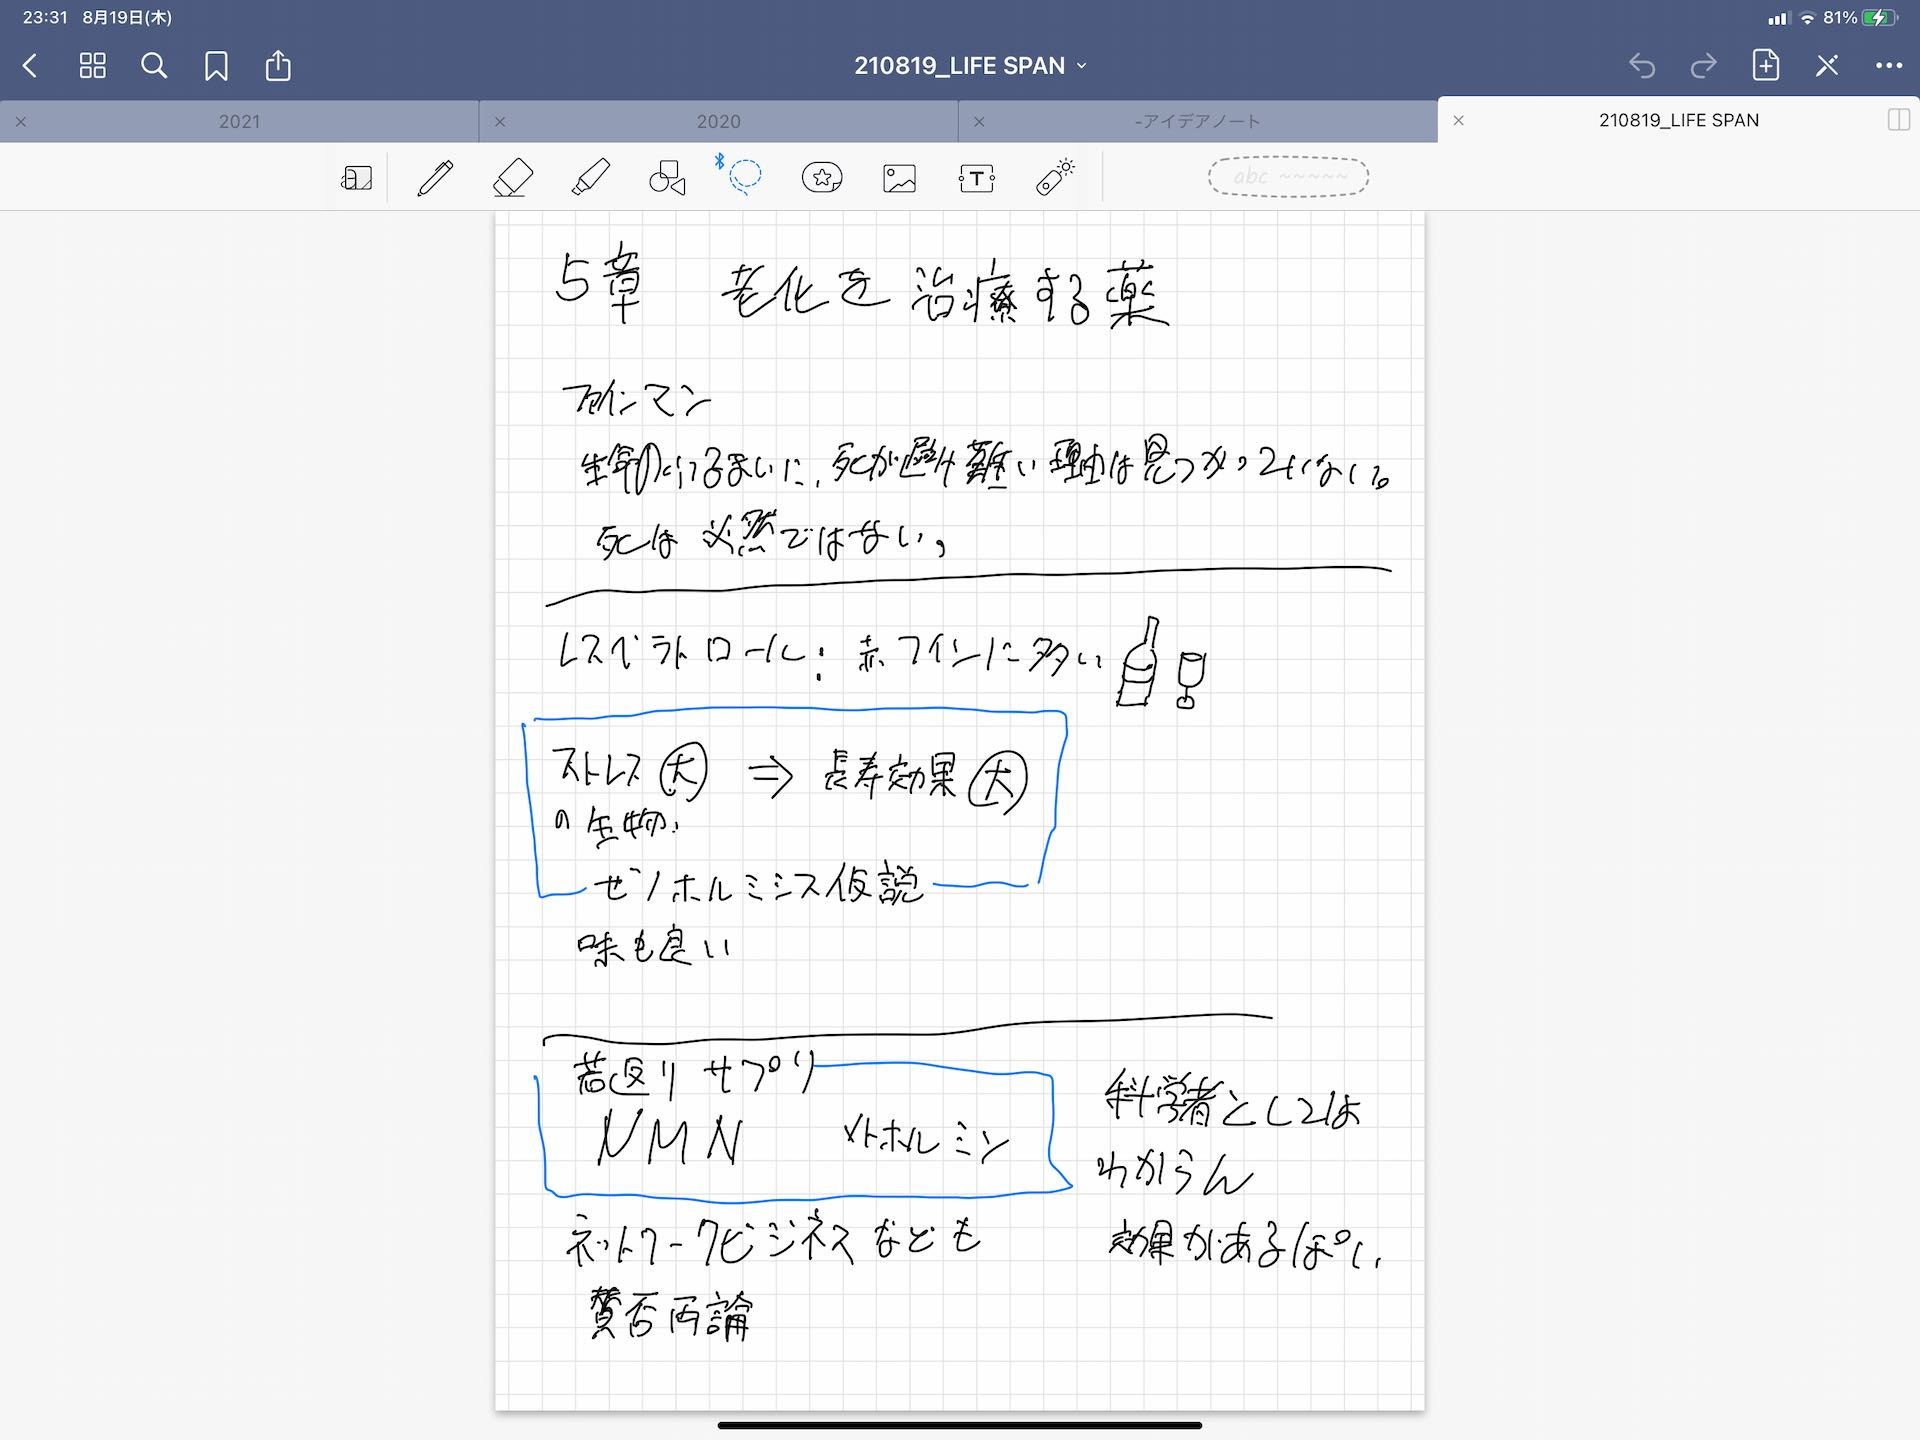 23:31 8月19日(木)
81%
210819_LIFE SPAN
2021
2020
-アイデアノート
210819_LIFE SPAN
abc ~~~~~
T
5章 老化を治療する薬
ファインマン
生命のふるまいに、死が避け難い理由は見つかっていない。
死は必然ではない。
レスベラトロール：赤ワインに多い
ストレス大 ⇒ 長寿効果大
の生物.
ゼノホルミシス仮説
味も良い
若返りサプリ
NMN メトホルミン
ネットワークビジネスなども
賛否両論
科学者としては
わからん
効果があるっぽい